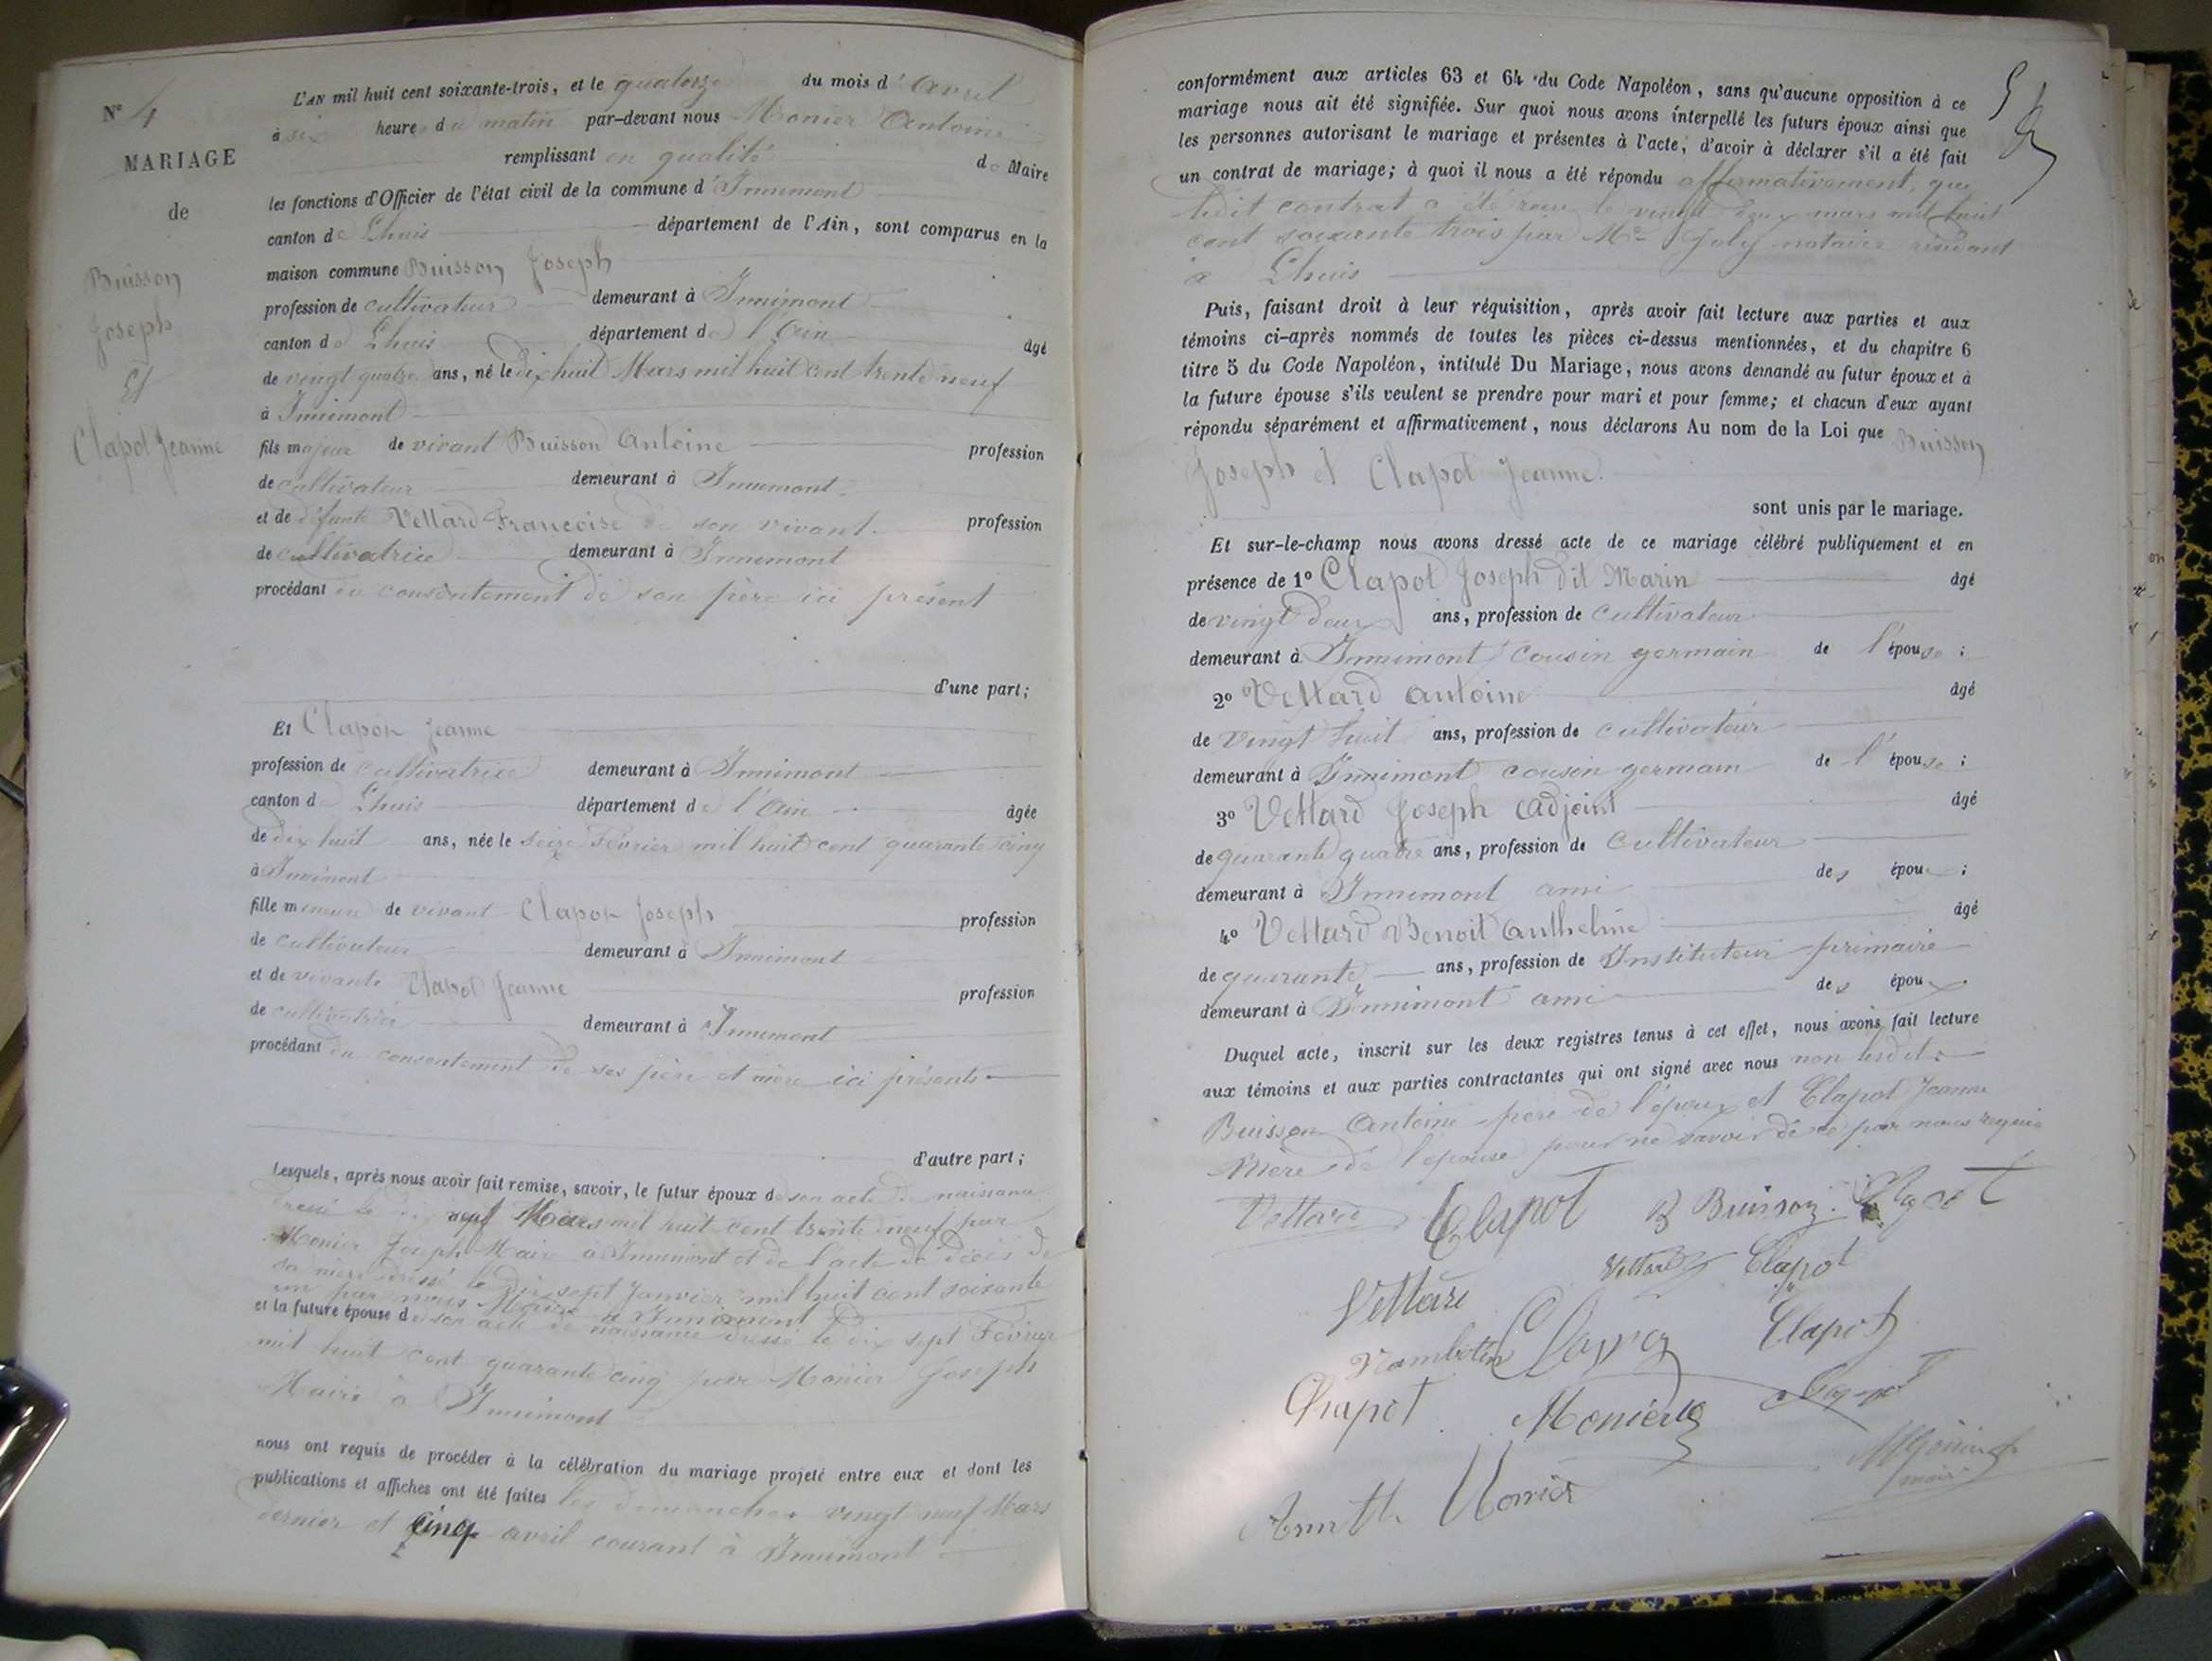 N° 4
MARIAGE
de
Buisson
Joseph
Et
Clapot Jeanne
L'AN mil huit cent soixante-trois, et le quatorze du mois d'Avril
à six heure du matin par-devant nous Monier Antoine
remplissant en qualité de Maire
les fonctions d'Officier de l'état civil de la commune d'Innimont
canton de Lhuis département de l'Ain, sont comparus en la
maison commune Buisson Joseph
profession de cultivateur demeurant à Innimont
canton de Lhuis département de l'Ain âgé
de vingt quatre ans, né le dix huit Mars mil huit cent trente neuf
à Innimont
fils majeur de vivant Buisson Antoine profession
de cultivateur demeurant à Innimont
et de défunte Vettard Francoise de son vivant profession
de cultivatrice demeurant à Innimont
procédant du consentement de son père ici présent
d'une part;
Et Clapot Jeanne
profession de cultivatrice demeurant à Innimont
canton de Lhuis département de l'Ain âgée
de dix huit ans, née le seize Février mil huit cent quarante cinq
à Innimont
fille mineure de vivant Clapot Joseph profession
de cultivateur demeurant à Innimont
et de vivante Clapot Jeanne profession
de cultivatrice demeurant à Innimont
procédant du consentement de ses père et mère ici présents
d'autre part;
Lesquels, après nous avoir fait remise, savoir, le futur époux de son acte de naissance
dressé le dix neuf Mars mil huit cent trente neuf par
Monier Joseph Maire à Innimont et de l'acte de décès de
sa mère dressé le dix sept Janvier mil huit cent soixante
un par nous Maire à Innimont
et la future épouse de son acte de naissance dressé le dix sept Février
mil huit cent quarante cinq par Monier Joseph
Maire à Innimont
nous ont requis de procéder à la célébration du mariage projeté entre eux et dont les
publications et affiches ont été faites les dimanches vingt neuf Mars
dernier et cinq avril courant à Innimont
conformément aux articles 63 et 64 du Code Napoléon, sans qu'aucune opposition à ce
mariage nous ait été signifiée. Sur quoi nous avons interpellé les futurs époux ainsi que
les personnes autorisant le mariage et présentes à l'acte, d'avoir à déclarer s'il a été fait
un contrat de mariage; à quoi il nous a été répondu affirmativement, que
ledit contrat a été reçu le vingt deux mars mil huit
cent soixante trois par Me Joly notaire résidant
à Lhuis
Puis, faisant droit à leur réquisition, après avoir fait lecture aux parties et aux
témoins ci-après nommés de toutes les pièces ci-dessus mentionnées, et du chapitre 6
titre 5 du Code Napoléon, intitulé Du Mariage, nous avons demandé au futur époux et à
la future épouse s'ils veulent se prendre pour mari et pour femme; et chacun d'eux ayant
répondu séparément et affirmativement, nous déclarons Au nom de la Loi que Buisson
Joseph et Clapot Jeanne.
sont unis par le mariage.
Et sur-le-champ nous avons dressé acte de ce mariage célébré publiquement et en
présence de 1° Clapot Joseph dit Marin âgé
de vingt deux ans, profession de cultivateur
demeurant à Innimont cousin germain de l'épouse;
2° Vettard Antoine âgé
de vingt huit ans, profession de cultivateur
demeurant à Innimont cousin germain de l'épouse;
3° Vettard Joseph Adjoint âgé
de quarante quatre ans, profession de cultivateur
demeurant à Innimont ami des époux;
4° Vettard Benoit Anthelme âgé
de quarante ans, profession de Instituteur primaire
demeurant à Innimont ami des époux
Duquel acte, inscrit sur les deux registres tenus à cet effet, nous avons fait lecture
aux témoins et aux parties contractantes qui ont signé avec nous non lesdits
Buisson Antoine père de l'époux et Clapot Jeanne
mère de l'épouse pour ne savoir de ce par nous requis
Vettard Clapot B Buisson Clapot
Vettard Vettard Clapot
Clapot
Clapot Monier Clapot
Monier
maire